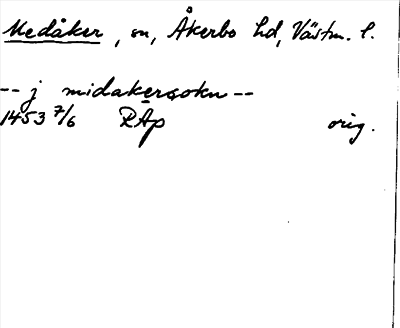 Medåker, sn, Åkerbo hd, Västm. l.
-- j midakersokn --
1453 7/6 RAp orig.